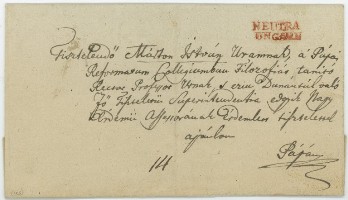 NEUTRA
UNGARN
Tisztelendő Márton István Uramnak, a Pápai
Reformatum Collegiumban Filozofiát tanító
Professor Urnak, s ezen Dunántúl való
Fő Superintendentia egyik Nagy
Érdemű Assessorának Érdemlett tisztelettel
ajánlom
14
Pápán